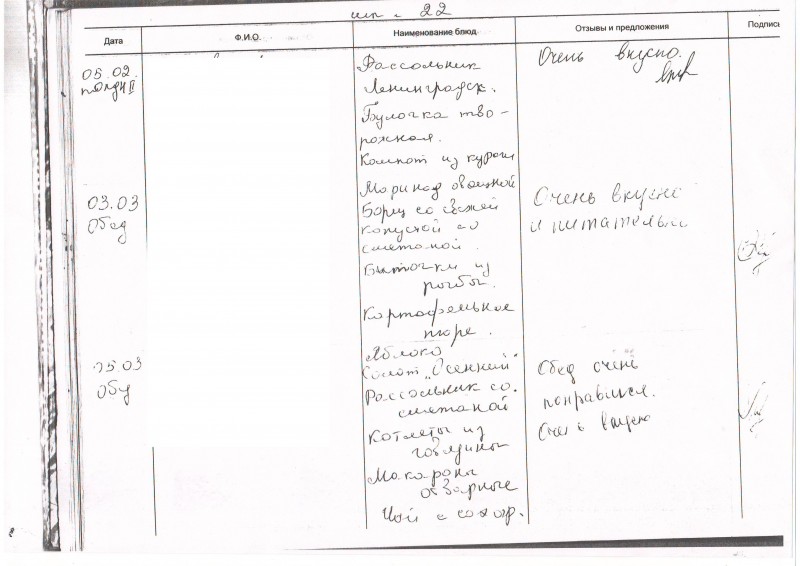 шк № 22
Дата Ф.И.О. Наименование блюд Отзывы и предложения Подпись
05.02. Рассольник Очень вкусно.
полдн II Ленинградск.
Булочка тво-
рожная.
Компот из кураги
Маринад овощной
03.03 Борщ со свежей Очень вкусно
Обед капустой со и питательно
сметаной.
Биточки из
рыбы.
Картофельное
пюре.
Яблоко
05.03 Салат „Осенний" Обед очень
Обед Рассольник со понравился.
сметаной
Котлеты из Очень вкусно
говядины
Макароны
отварные
Чай с сахар.